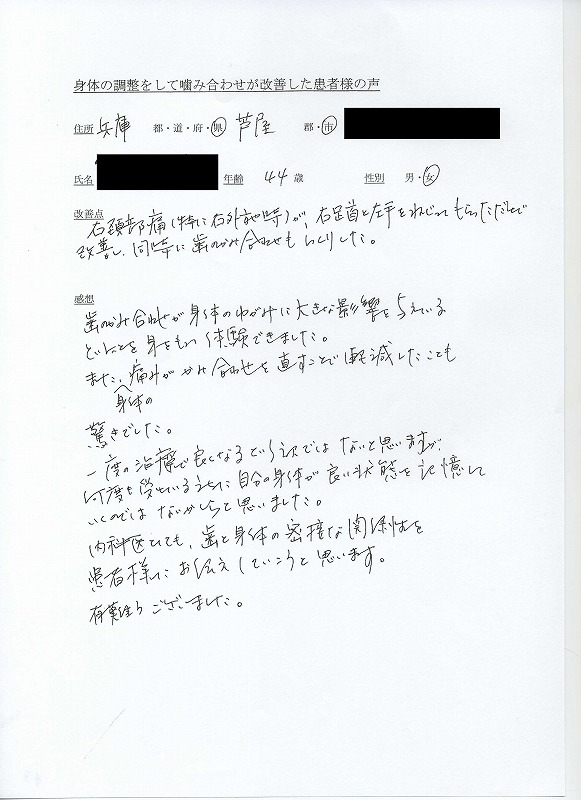 身体の調整をして噛み合わせが改善した患者様の声
住所 兵庫 都・道・府・県 芦屋 郡・市
氏名 年齢 44歳 性別 男・女
改善点
右頸部痛(特に右外旋時)が、右足首と左手をねじってもらっただけで
改善し、同時に歯のかみ合わせもしっくりした。
感想
歯のかみ合わせが身体のゆがみに大きな影響を与えている
ということを身をもって体験できました。
また、身体の痛みがかみ合わせを直すことで軽減したことも
驚きでした。
一度の治療で良くなるという訳ではないと思いますが、
何度も受けているうちに自分の身体が良い状態を記憶して
いくのではないかしらと思いました。
内科医としても、歯と身体の密接な関係性を
患者様にお伝えしていこうと思います。
有難うございました。